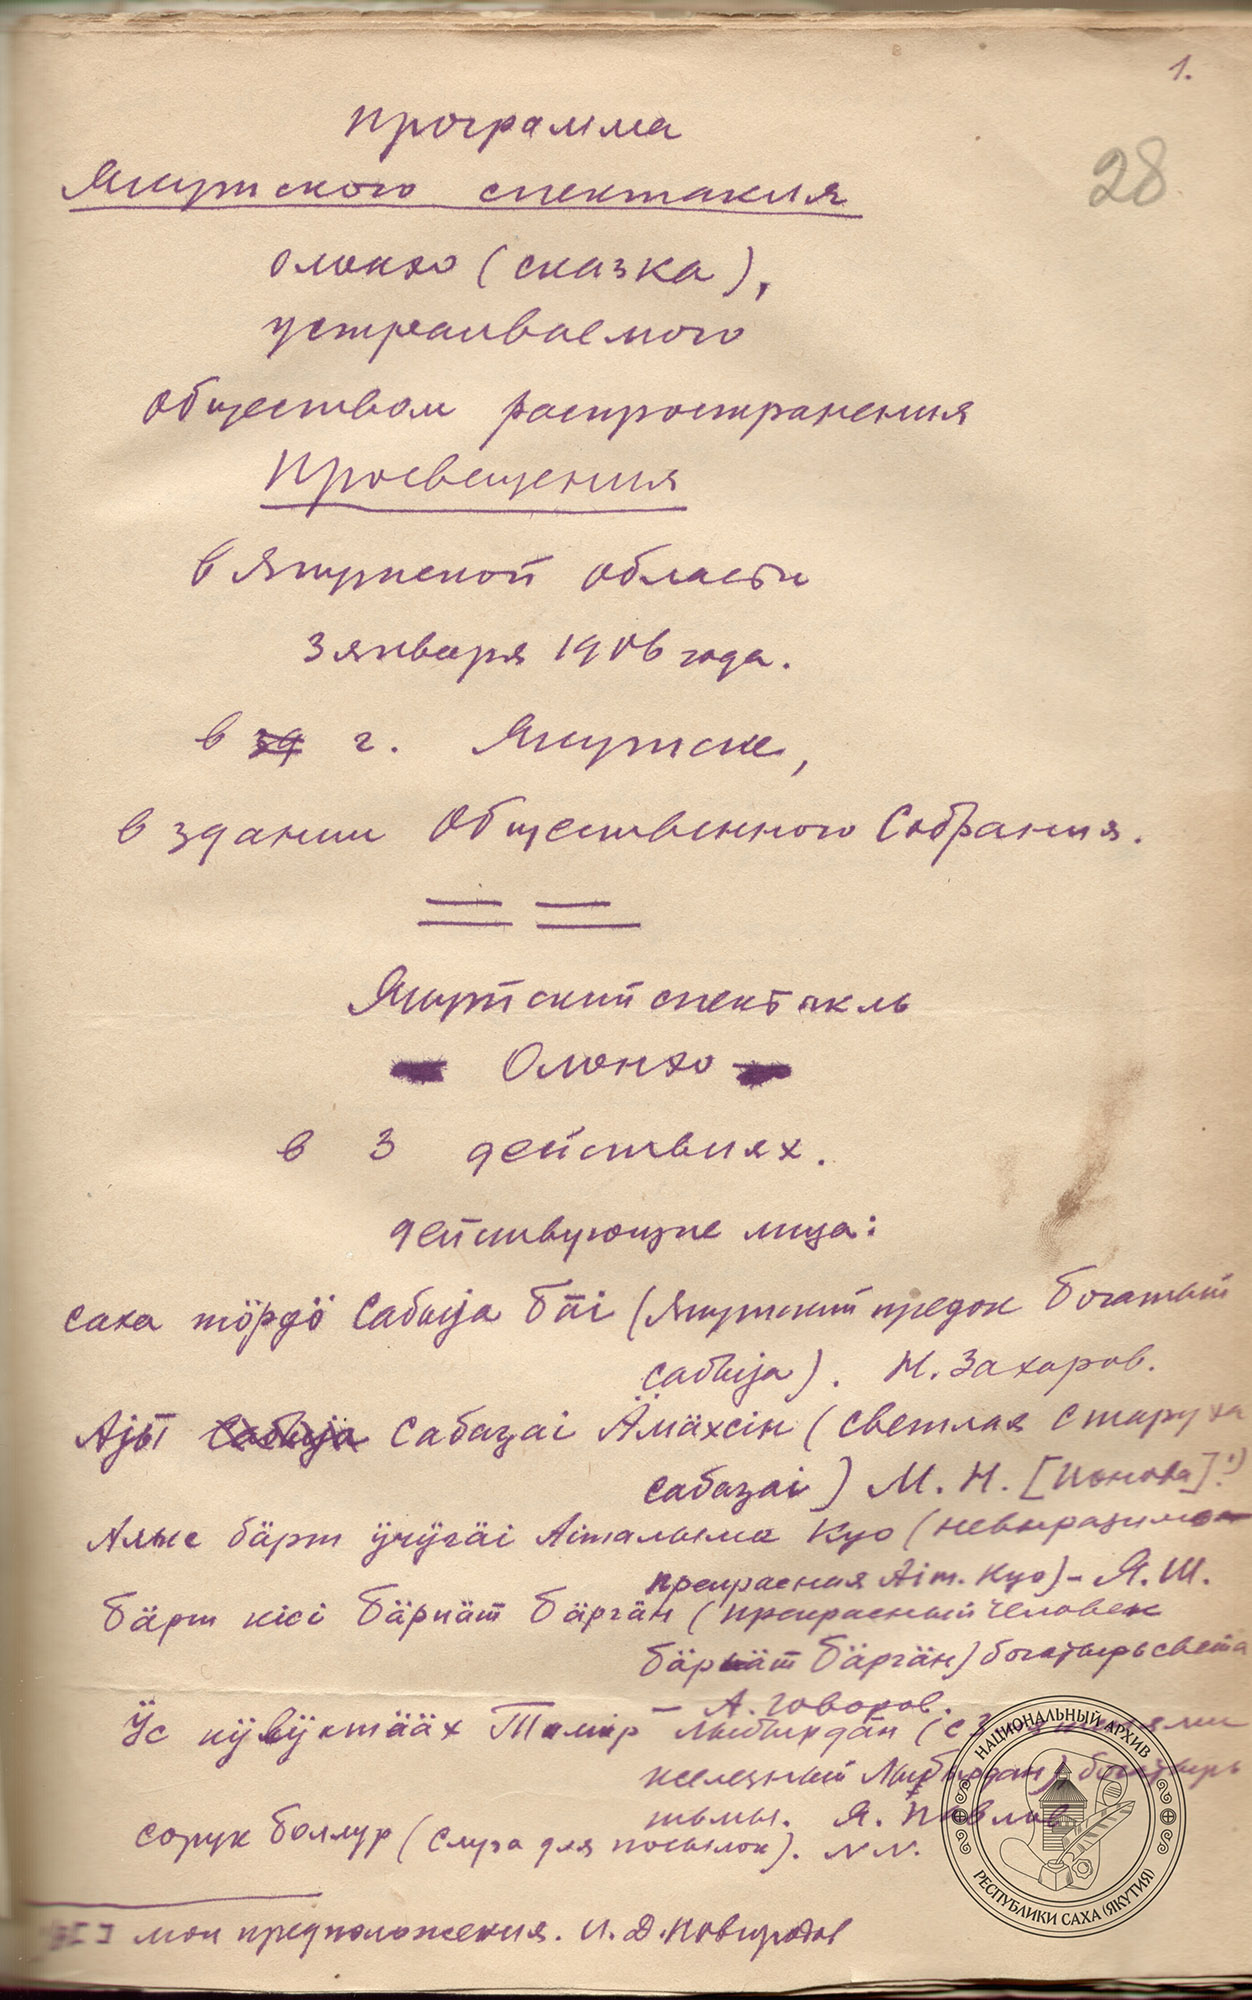 1.
28
Программа
Якутского спектакля
олонхо (сказка),
устраиваемого
обществом распространения
Просвещения
в Якутской области
3 января 1906 года.
в г. Якутске,
в здании Общественного Собрания.
Якутский спектакль
Олонхо
в 3 действиях.
действующие лица:
Саха тöрдö Сабыjа бāi (Якутский предок богатый
сабыjа). Н. Захаров.
Аjы̄ Сабаӡаi Äмäхсiн (светлая старуха
сабаӡаi) М. Н. [Ионова].¹)
Алыс бäрт ӱчӱгäi Аiталыма Куо (невыразимо
прекрасная Аiт. Куо) – Я. Ш.
Бäрт кiсi Бäрiäт Бäргäн (прекрасный человек
Бäрiäт Бäргäн) богатырь света
– А. Говоров.
Ӱс кӱlӱктääх Тимiр Лыбырдāн (с 3 тенями
железный Лыбырдан) богатырь
тьмы. Я. Павлов
сорук боллур (слуга для посылок). N N.
[ ] мои предположения. И. Д. Новгородов
НАЦИОНАЛЬНЫЙ АРХИВ
РЕСПУБЛИКИ САХА (ЯКУТИЯ)